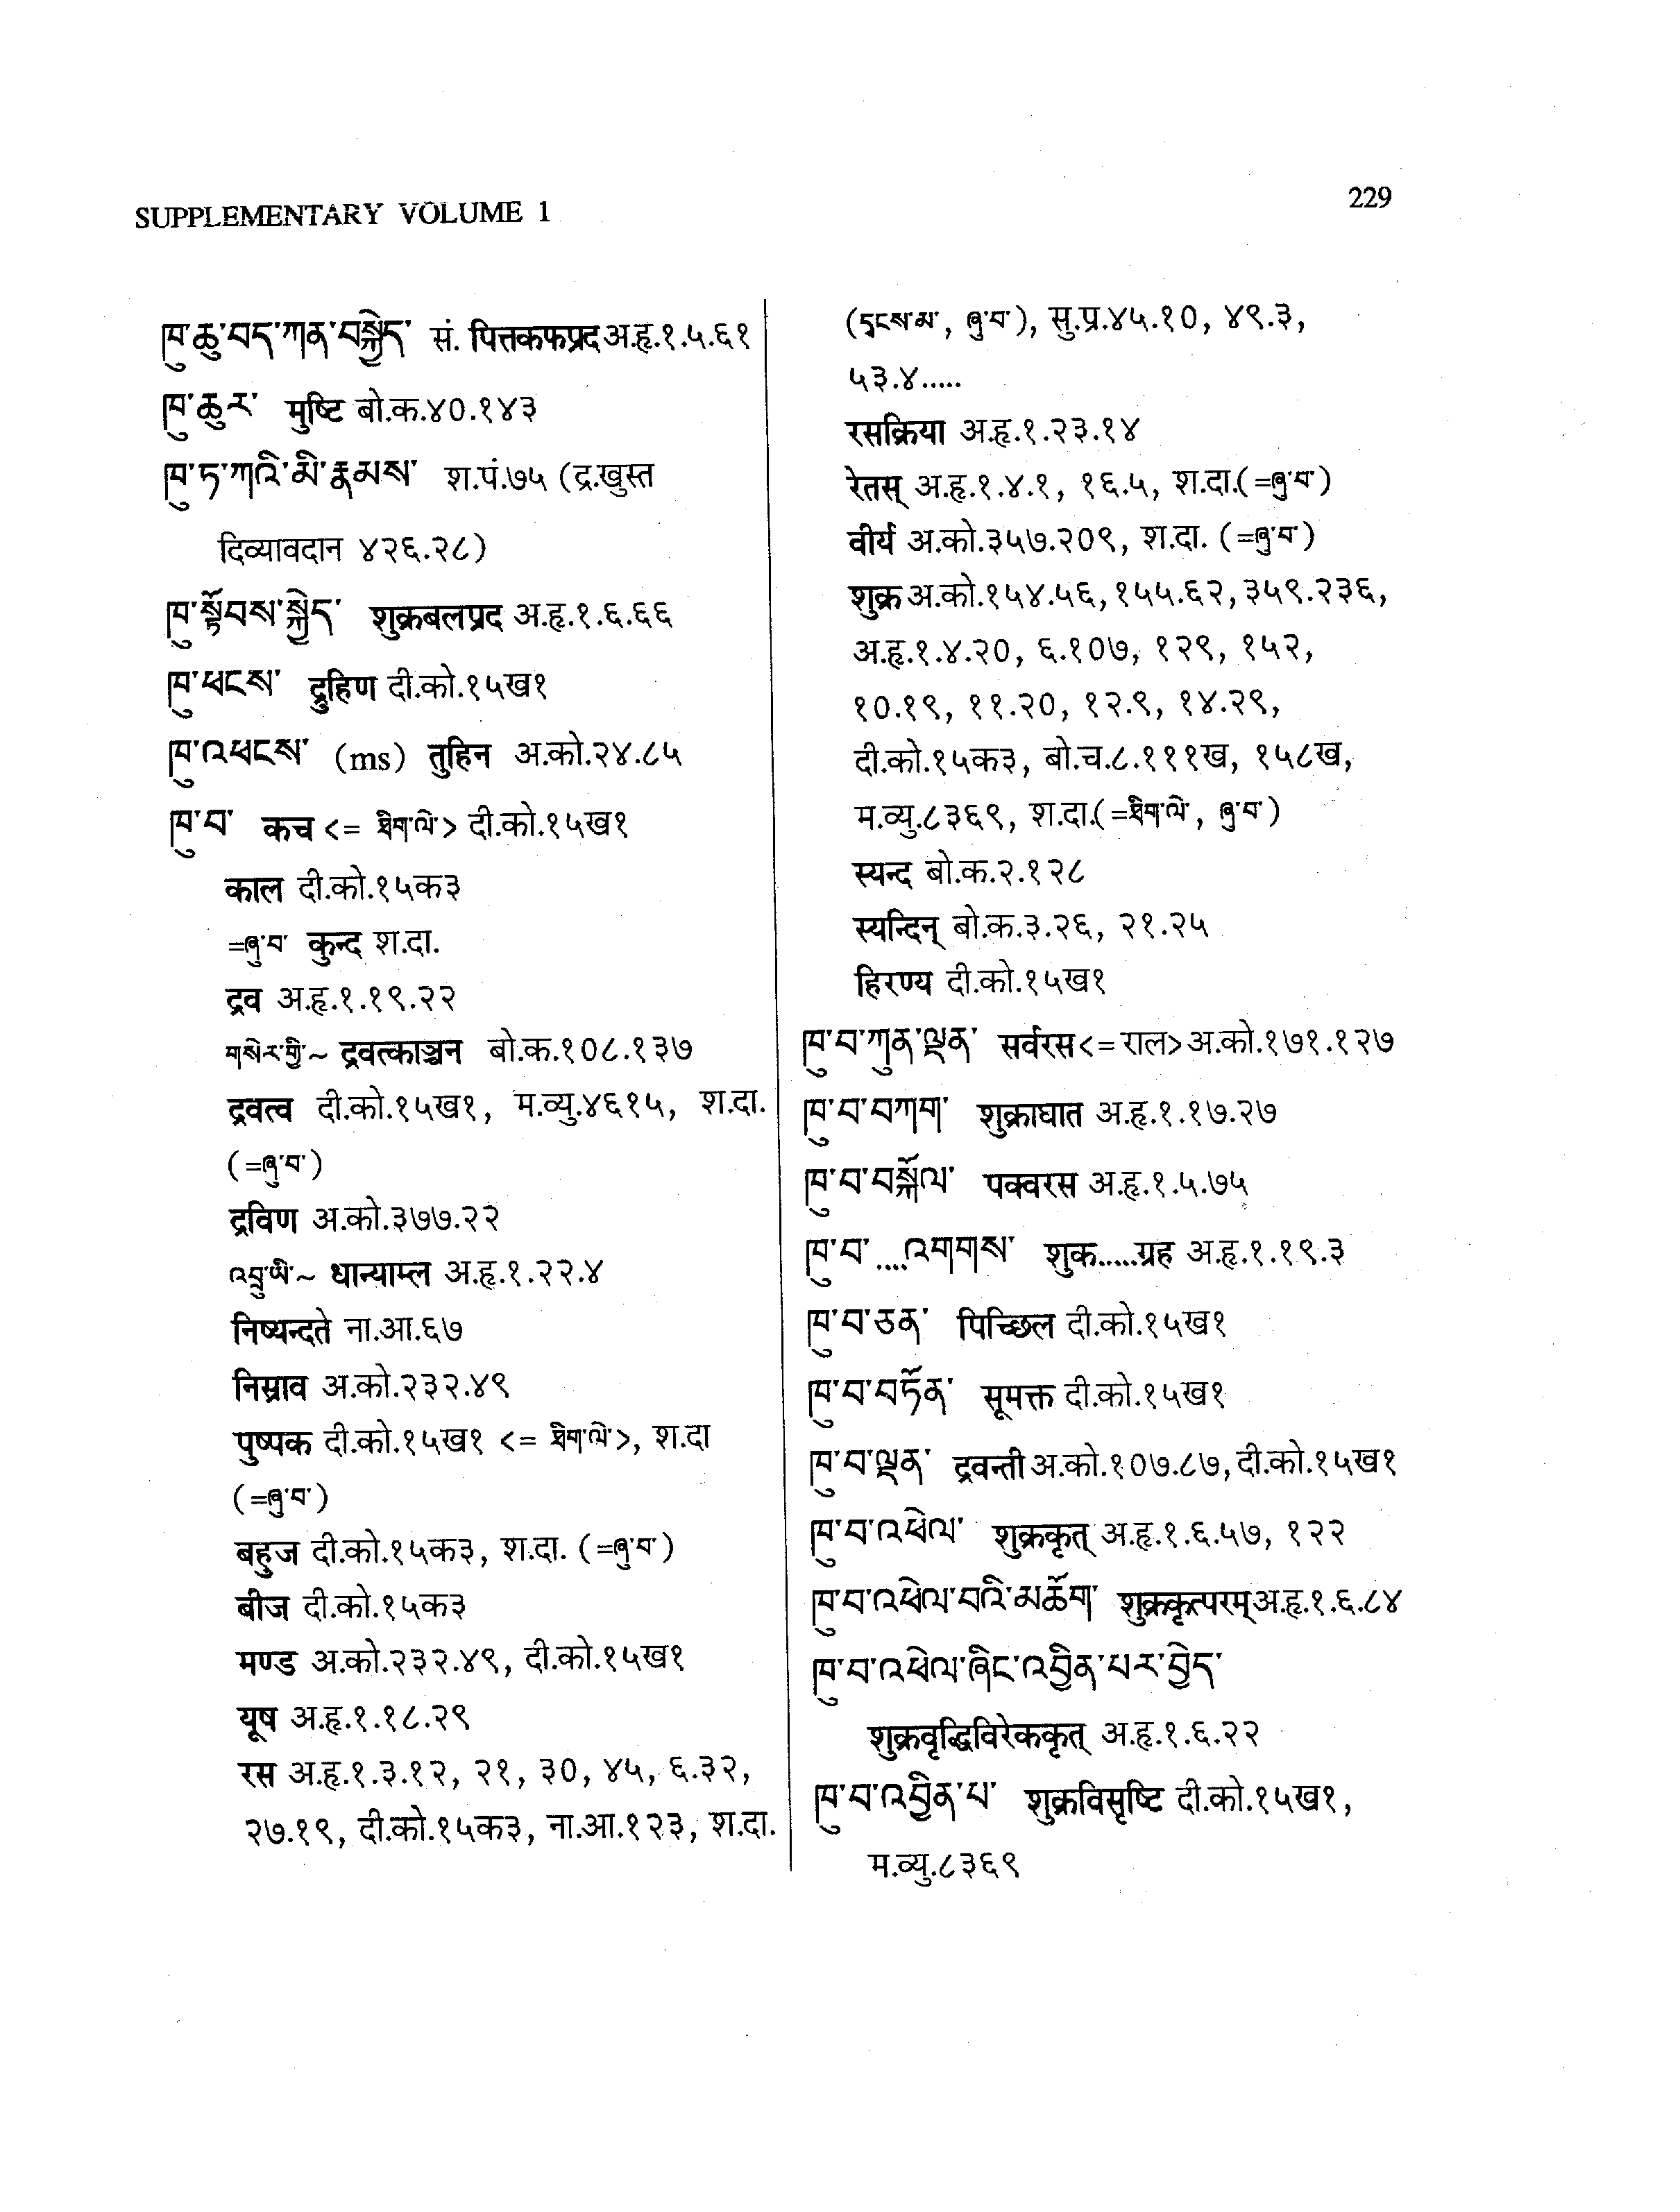 SUPPLEMENTARY VOLUME 1
229
ཁུ་ཆུ་བད་ཀན་བསྐྱེད་ सं. पित्तकफप्रद अ.हृ.१.५.६१
ཁུ་ཆུར་ मुष्टि बो.क.४०.१४३
ཁུ་ཏ་ཀའི་མི་རྣམས་ श.पं.७५ (द्र.खुस्त
दिव्यावदान ४२६.२८)
ཁུ་སྟོབས་སྐྱེད་ शुक्रबलप्रद अ.हृ.१.६.६६
ཁུ་ཕངས་ द्रुहिण दी.को.१५ख१
ཁུ་འཕངས་ (ms) तुहिन अ.को.२४.८५
ཁུ་བ་ कच <= ཐིག་ལེ་> दी.को.१५ख१
काल दी.को.१५क३
=ཞུ་བ་ कुन्द श.दा.
द्रव अ.हृ.१.१९.२२
གསེར་གྱི་~ द्रवत्काञ्चन बो.क.१०८.१३७
द्रवत्व दी.को.१५ख१, म.व्यु.४६१५, श.दा.
(=ཞུ་བ་)
द्रविण अ.को.३७७.२२
འབྲུ་ཡི་~ धान्याम्ल अ.हृ.१.२२.४
निष्यन्दते ना.आ.६७
निस्राव अ.को.२३२.४९
पुष्पक दी.को.१५ख१ <= ཐིག་ལེ་>, श.दा
(=ཞུ་བ་)
बहुज दी.को.१५क३, श.दा. (=ཞུ་བ་)
बीज दी.को.१५क३
मण्ड अ.को.२३२.४९, दी.को.१५ख१
यूष अ.हृ.१.१८.२९
रस अ.हृ.१.३.१२, २१, ३०, ४५, ६.३२,
२७.१९, दी.को.१५क३, ना.आ.१२३, श.दा.
(དྭངས་མ་, ཞུ་བ་), सु.प्र.४५.१०, ४९.३,
५३.४.....
रसक्रिया अ.हृ.१.२३.१४
रेतस् अ.हृ.१.४.१, १६.५, श.दा.(=ཞུ་བ་)
वीर्य अ.को.३५७.२०९, श.दा. (=ཞུ་བ་)
शुक्र अ.को.१५४.५६, १५५.६२, ३५९.२३६,
अ.हृ.१.४.२०, ६.१०७, १२९, १५२,
१०.१९, ११.२०, १२.९, १४.२९,
दी.को.१५क३, बो.च.८.१११ख, १५८ख,
म.व्यु.८३६९, श.दा.(=ཐིག་ལེ་, ཞུ་བ་)
स्यन्द बो.क.२.१२८
स्यन्दिन् बो.क.३.२६, २१.२५
हिरण्य दी.को.१५ख१
ཁུ་བ་ཀུན་ལྡན་ सर्वरस <= राल> अ.को.१७१.१२७
ཁུ་བ་བཀག་ शुक्राघात अ.हृ.१.१७.२७
ཁུ་བ་བསྐོལ་ पक्वरस अ.हृ.१.५.७५
ཁུ་བ་....འགགས་ शुक.....ग्रह अ.हृ.१.१९.३
ཁུ་བ་ཅན་ पिच्छिल दी.को.१५ख१
ཁུ་བ་བཏོན་ सूमक्त दी.को.१५ख१
ཁུ་བ་ལྡན་ द्रवन्ती अ.को.१०७.८७, दी.को.१५ख१
ཁུ་བ་འཕེལ་ शुक्रकृत् अ.हृ.१.६.५७, १२२
ཁུ་བ་འཕེལ་བའི་མཆོག་ शुक्रकृत्परम् अ.हृ.१.६.८४
ཁུ་བ་འཕེལ་ཞིང་འབྱིན་པར་བྱེད་
शुक्रवृद्धिविरेककृत् अ.हृ.१.६.२२
ཁུ་བ་འབྱིན་པ་ शुक्रविसृष्टि दी.को.१५ख१,
म.व्यु.८३६९